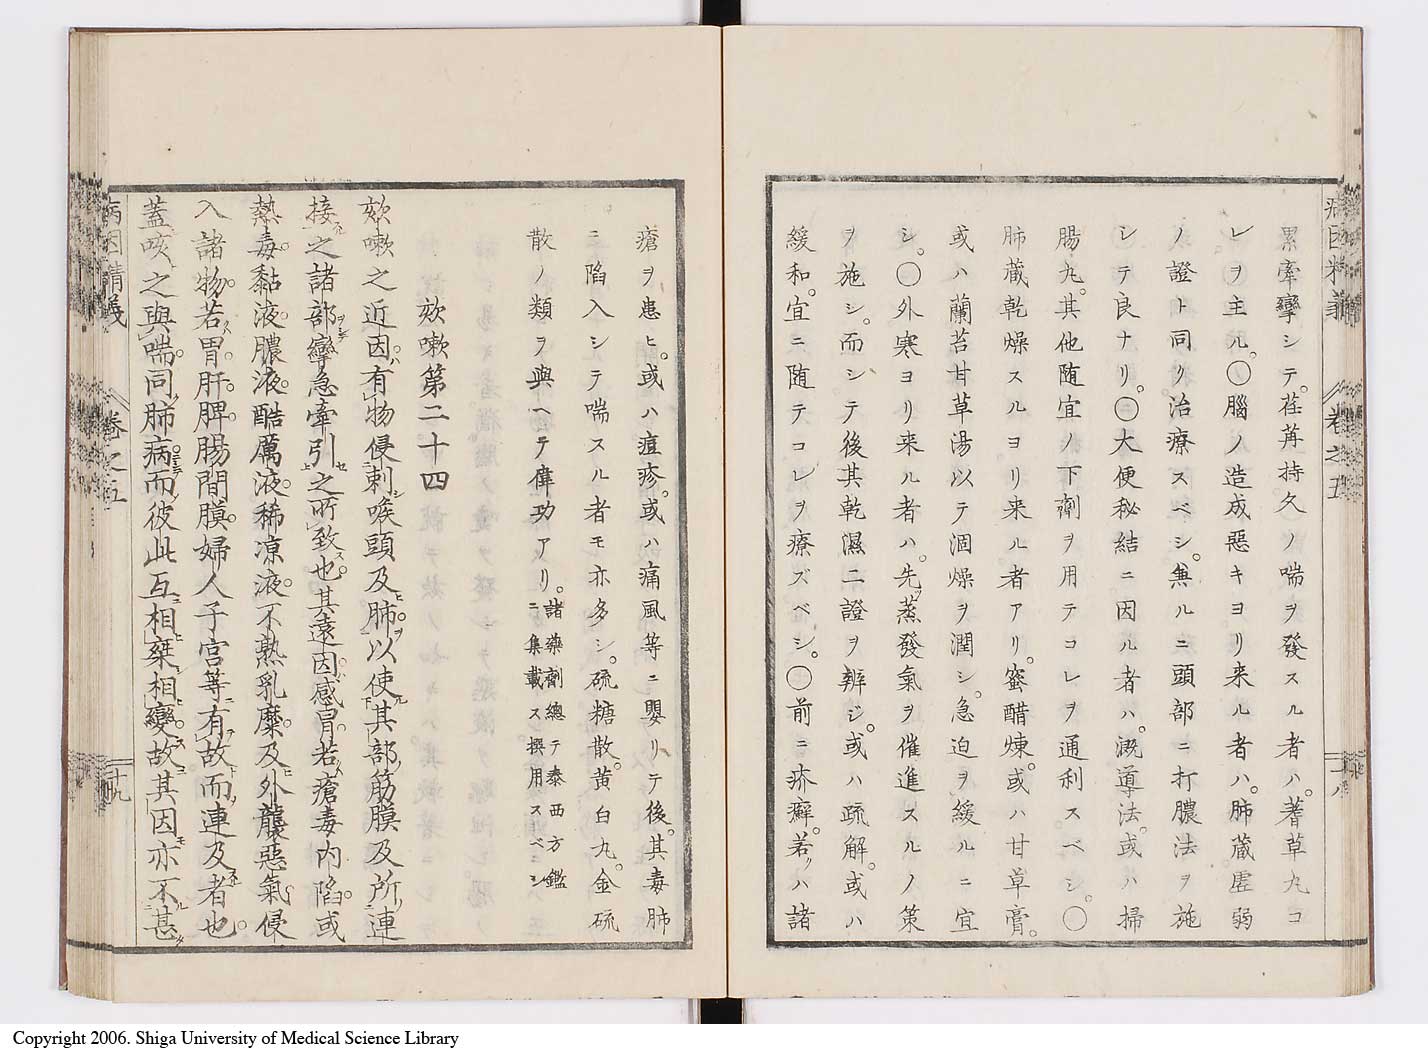 病因精義 卷之五 十八
累牽攣シテ。荏苒持久ノ喘ヲ發スル者ハ。蓍草丸コ
レヲ主ル。○腦ノ造成惡キヨリ来ル者ハ。肺蔵虚弱
ノ證ト同リ治療スベシ。兼ルニ頭部ニ打膿法ヲ施
シテ良ナリ。○大便秘結ニ因ル者ハ。溉導法。或ハ掃
腸丸。其他随宜ノ下劑ヲ用テコレヲ通利スベシ。○
肺蔵乾燥スルヨリ来ル者アリ。蜜醋煉。或ハ甘草膏。
或ハ蘭苔甘草湯以テ涸燥ヲ潤シ。急迫ヲ緩ルニ宜
シ。○外寒ヨリ来ル者ハ。先ツ蒸發氣ヲ催進スルノ策
ヲ施シ。而シテ後其乾濕二證ヲ辨ジ。或ハ疏解。或ハ
緩和。宜ニ随テコレヲ療ズベシ。○前ニ疥癬。若クハ諸
瘡ヲ患ヒ。或ハ痘疹。或ハ痛風等ニ嬰リテ後。其毒肺
ニ陷入シテ喘スル者モ亦多シ。硫糖散。黄白丸。金硫
散ノ類ヲ與ヘテ偉功アリ。諸藥劑總テ泰西方鑑
ニ集載ス撰用スベシ
欬嗽第二十四
欬嗽之近因ハ有物侵刺シ喉頭及ヒ肺ヲ以使ル其部筋膜及所連
接スル之諸部ヲシテ攣急牽引セ之所致ス也。其遠因ハ感冒若瘡毒内陷。或
熱毒。黏液。膿液。酷厲液。稀涼液。不熟乳糜。及ヒ外襲惡氣。侵
入諸物。若ハ胃。肝。脾。腸間膜。婦人子宮等ニ有故而連及スル者也。
蓋咳之與喘。同ク肺病ニシテ而彼此互ニ相棄相變ス。故ニ其因モ亦不甚タ
病因精義 卷之五 十九
Copyright 2006. Shiga University of Medical Science Library